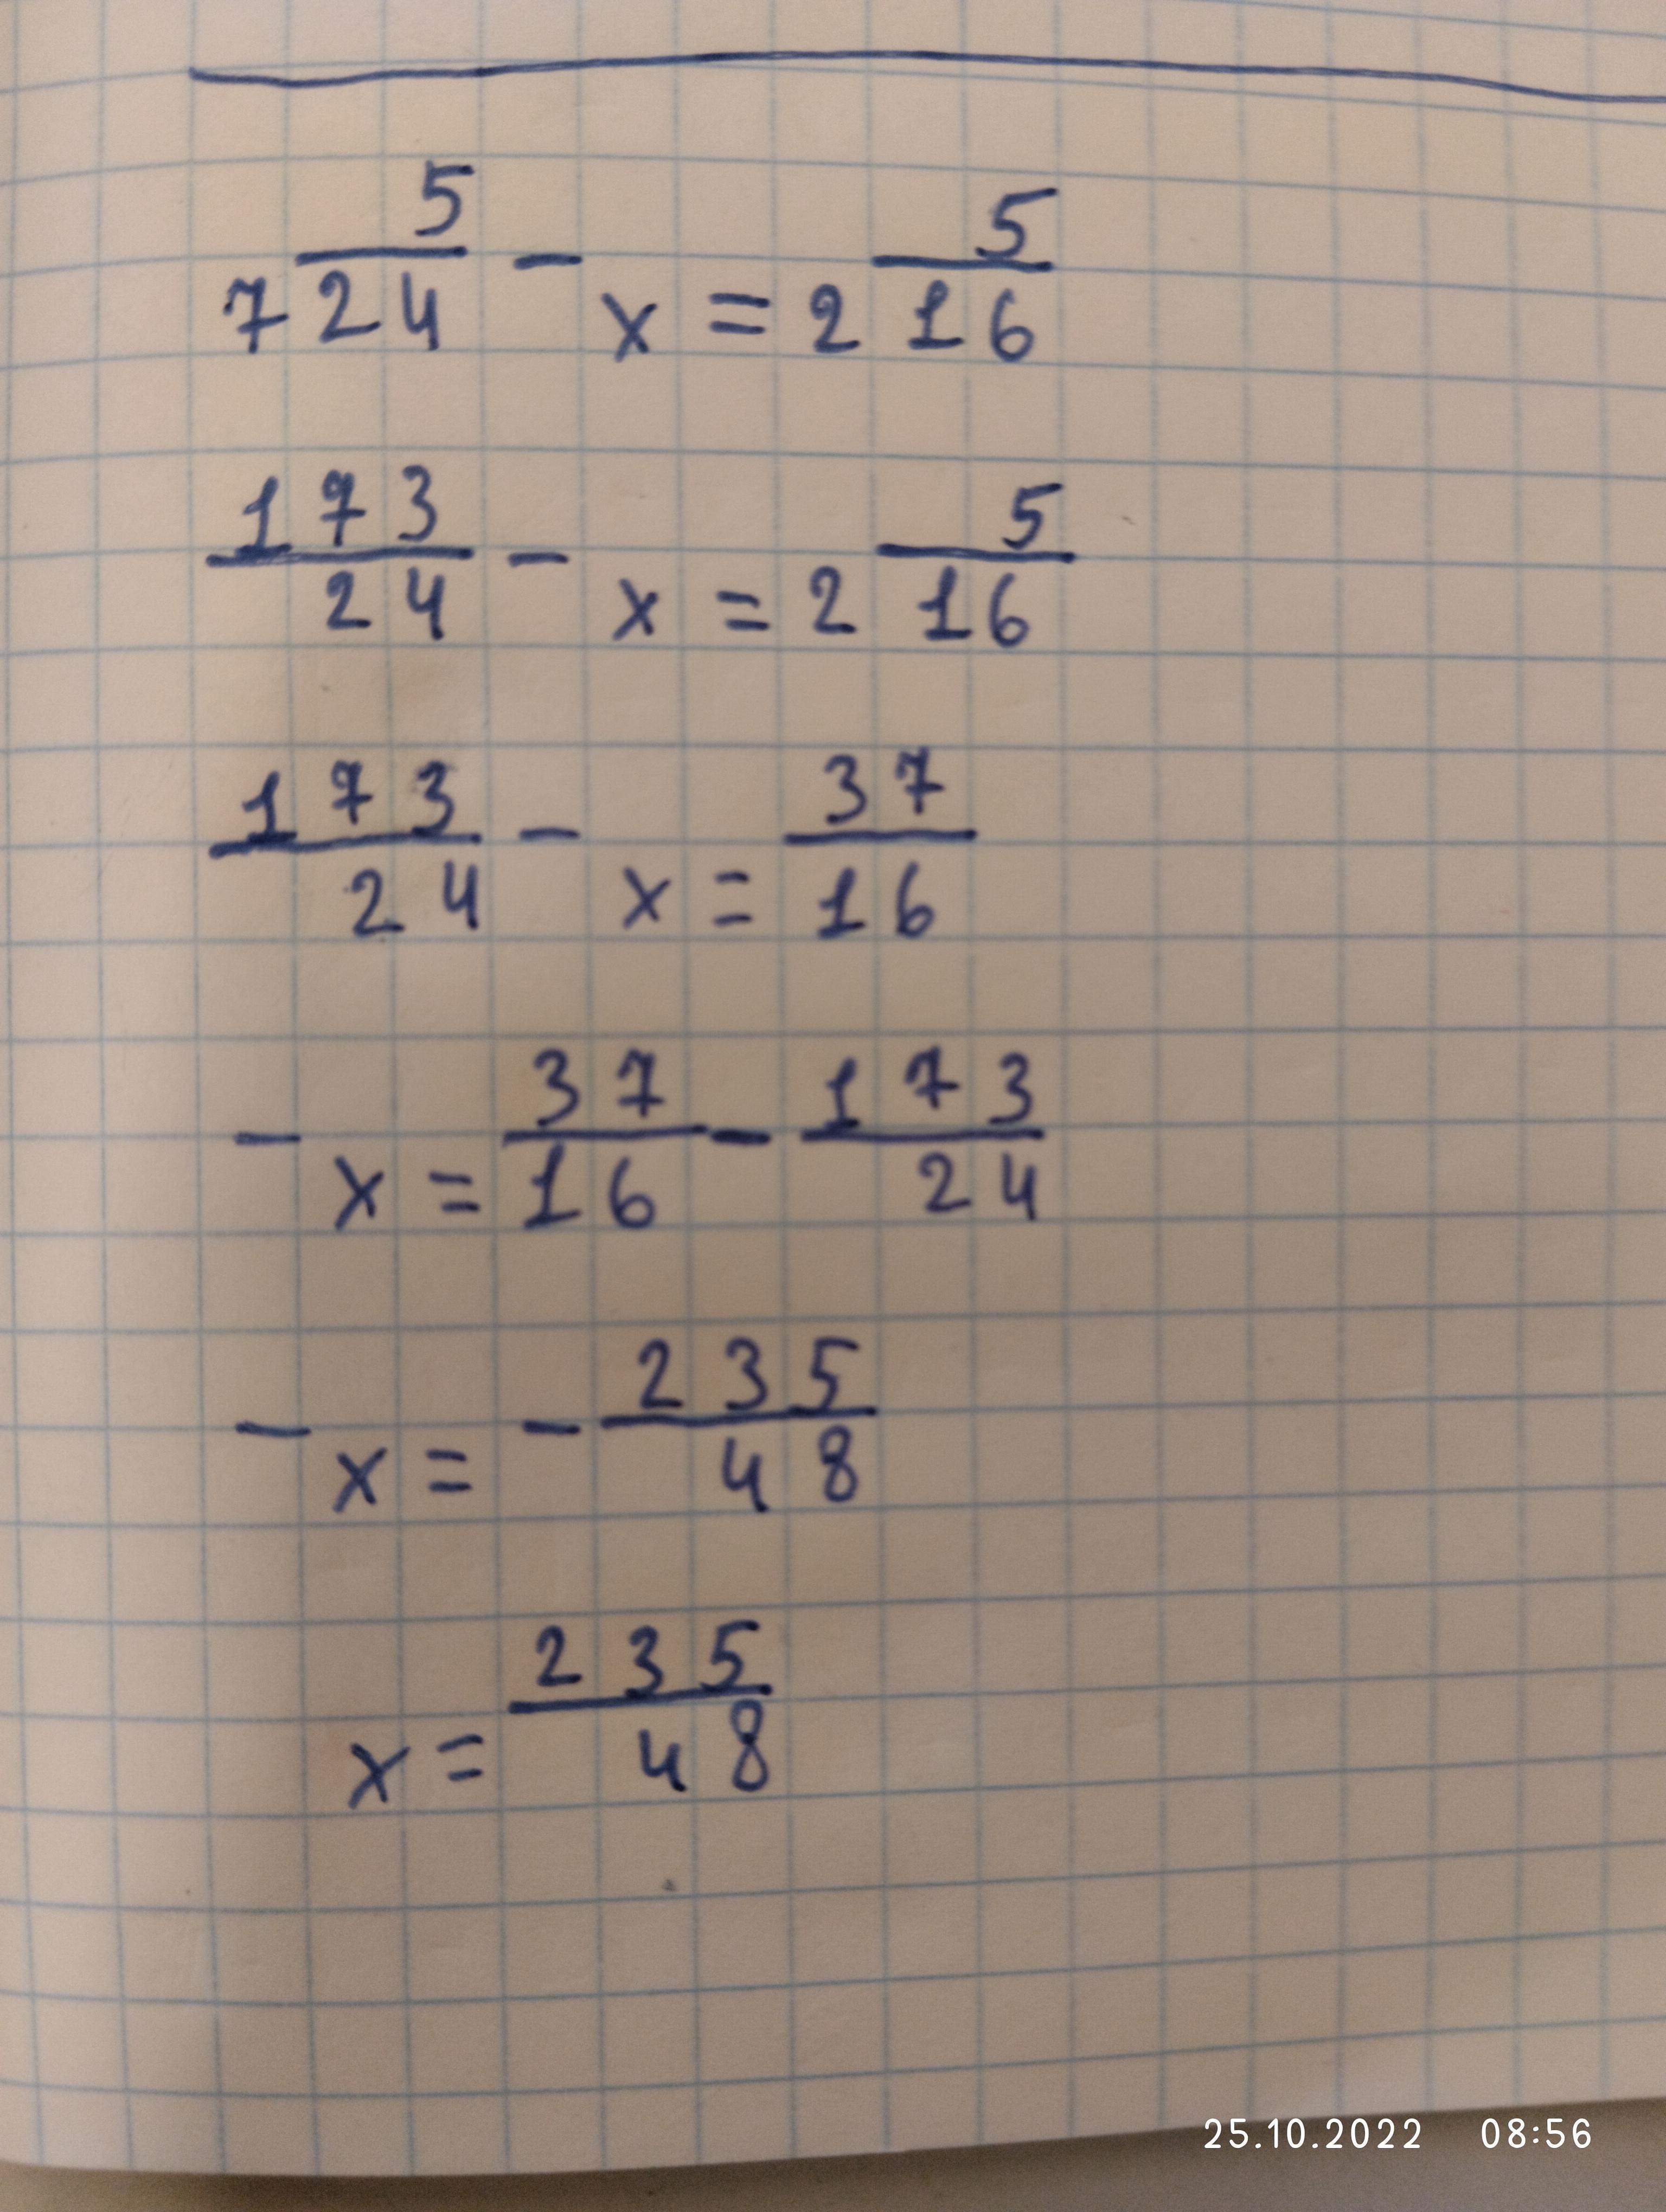 7 5/24 - x = 2 5/16
173/24 - x = 2 5/16
173/24 - x = 37/16
- x = 37/16 - 173/24
- x = - 235/48
x = 235/48
25.10.2022 08:56